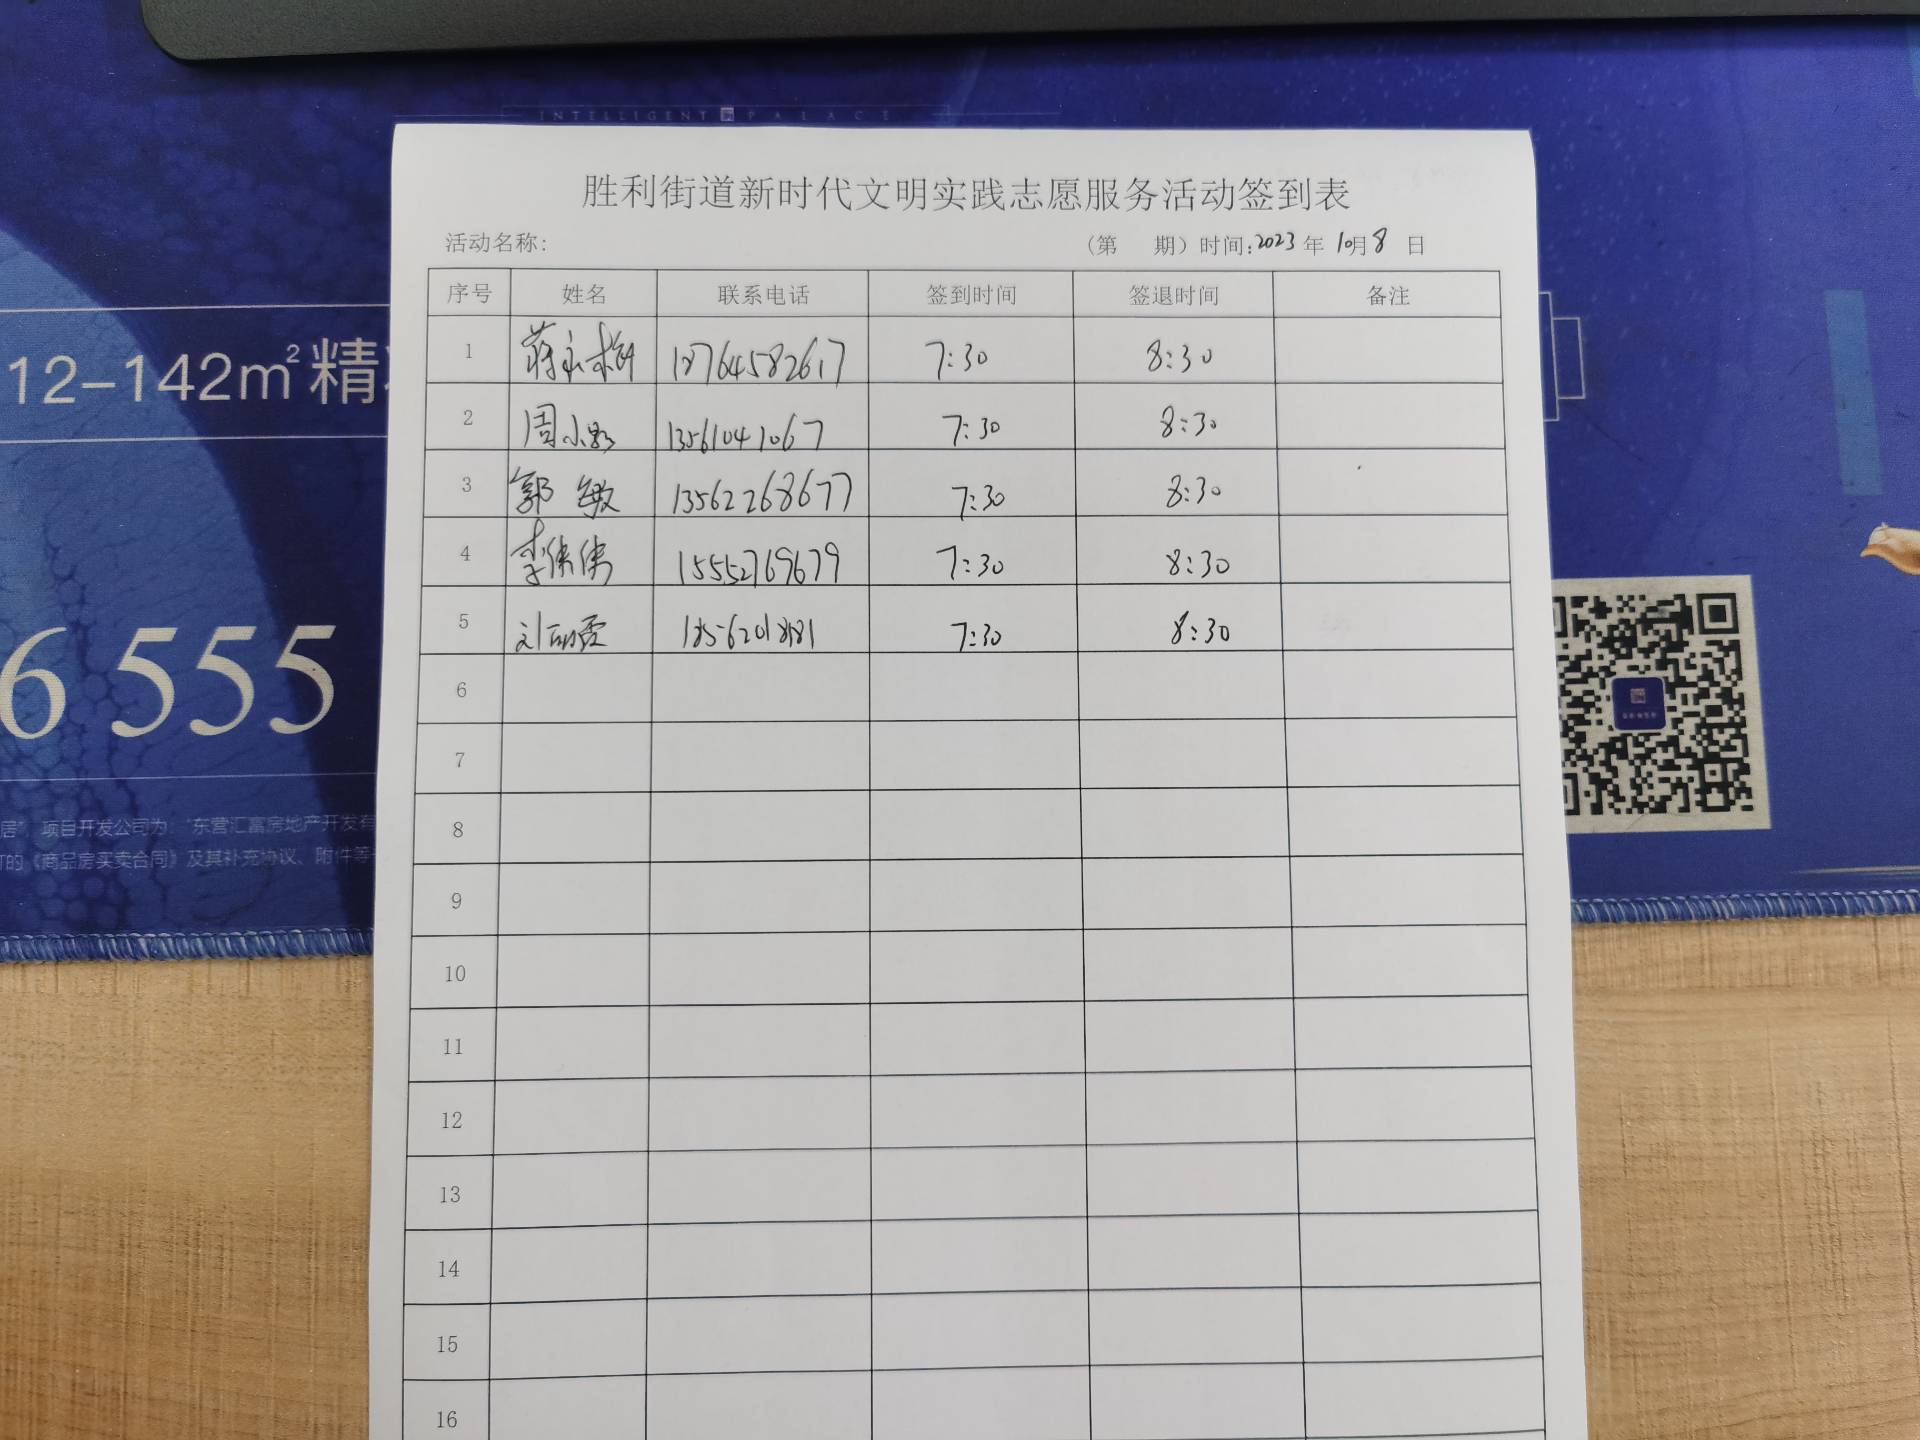 INTELLIGENT PALACE
胜利街道新时代文明实践志愿服务活动签到表
活动名称: （第 期）时间:2023年10月8日
序号 姓名 联系电话 签到时间 签退时间 备注
1 18764582617 7:30 8:30
2 周小 13561041067 7:30 8:30
3 郭敏 13562268677 7:30 8:30
4 李倩倩 15552769679 7:30 8:30
5 刘 霞 18562018181 7:30 8:30
6
7
8
9
10
11
12
13
14
15
16
12-142m²精
6 555
居”，项目开发公司为：“东营汇富房地产开发有
的《商品房买卖合同》及其补充协议、附件等